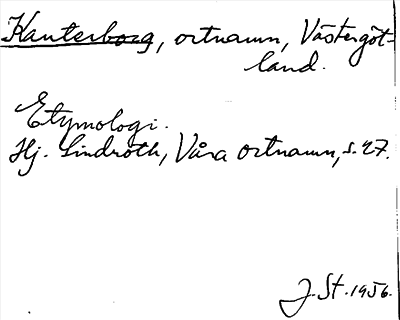 Kanterborg, ortnamn, Västergöt-
land.
Etymologi.
Hj. Lindroth, Våra ortnamn, s. 27.
J. St. 1956.